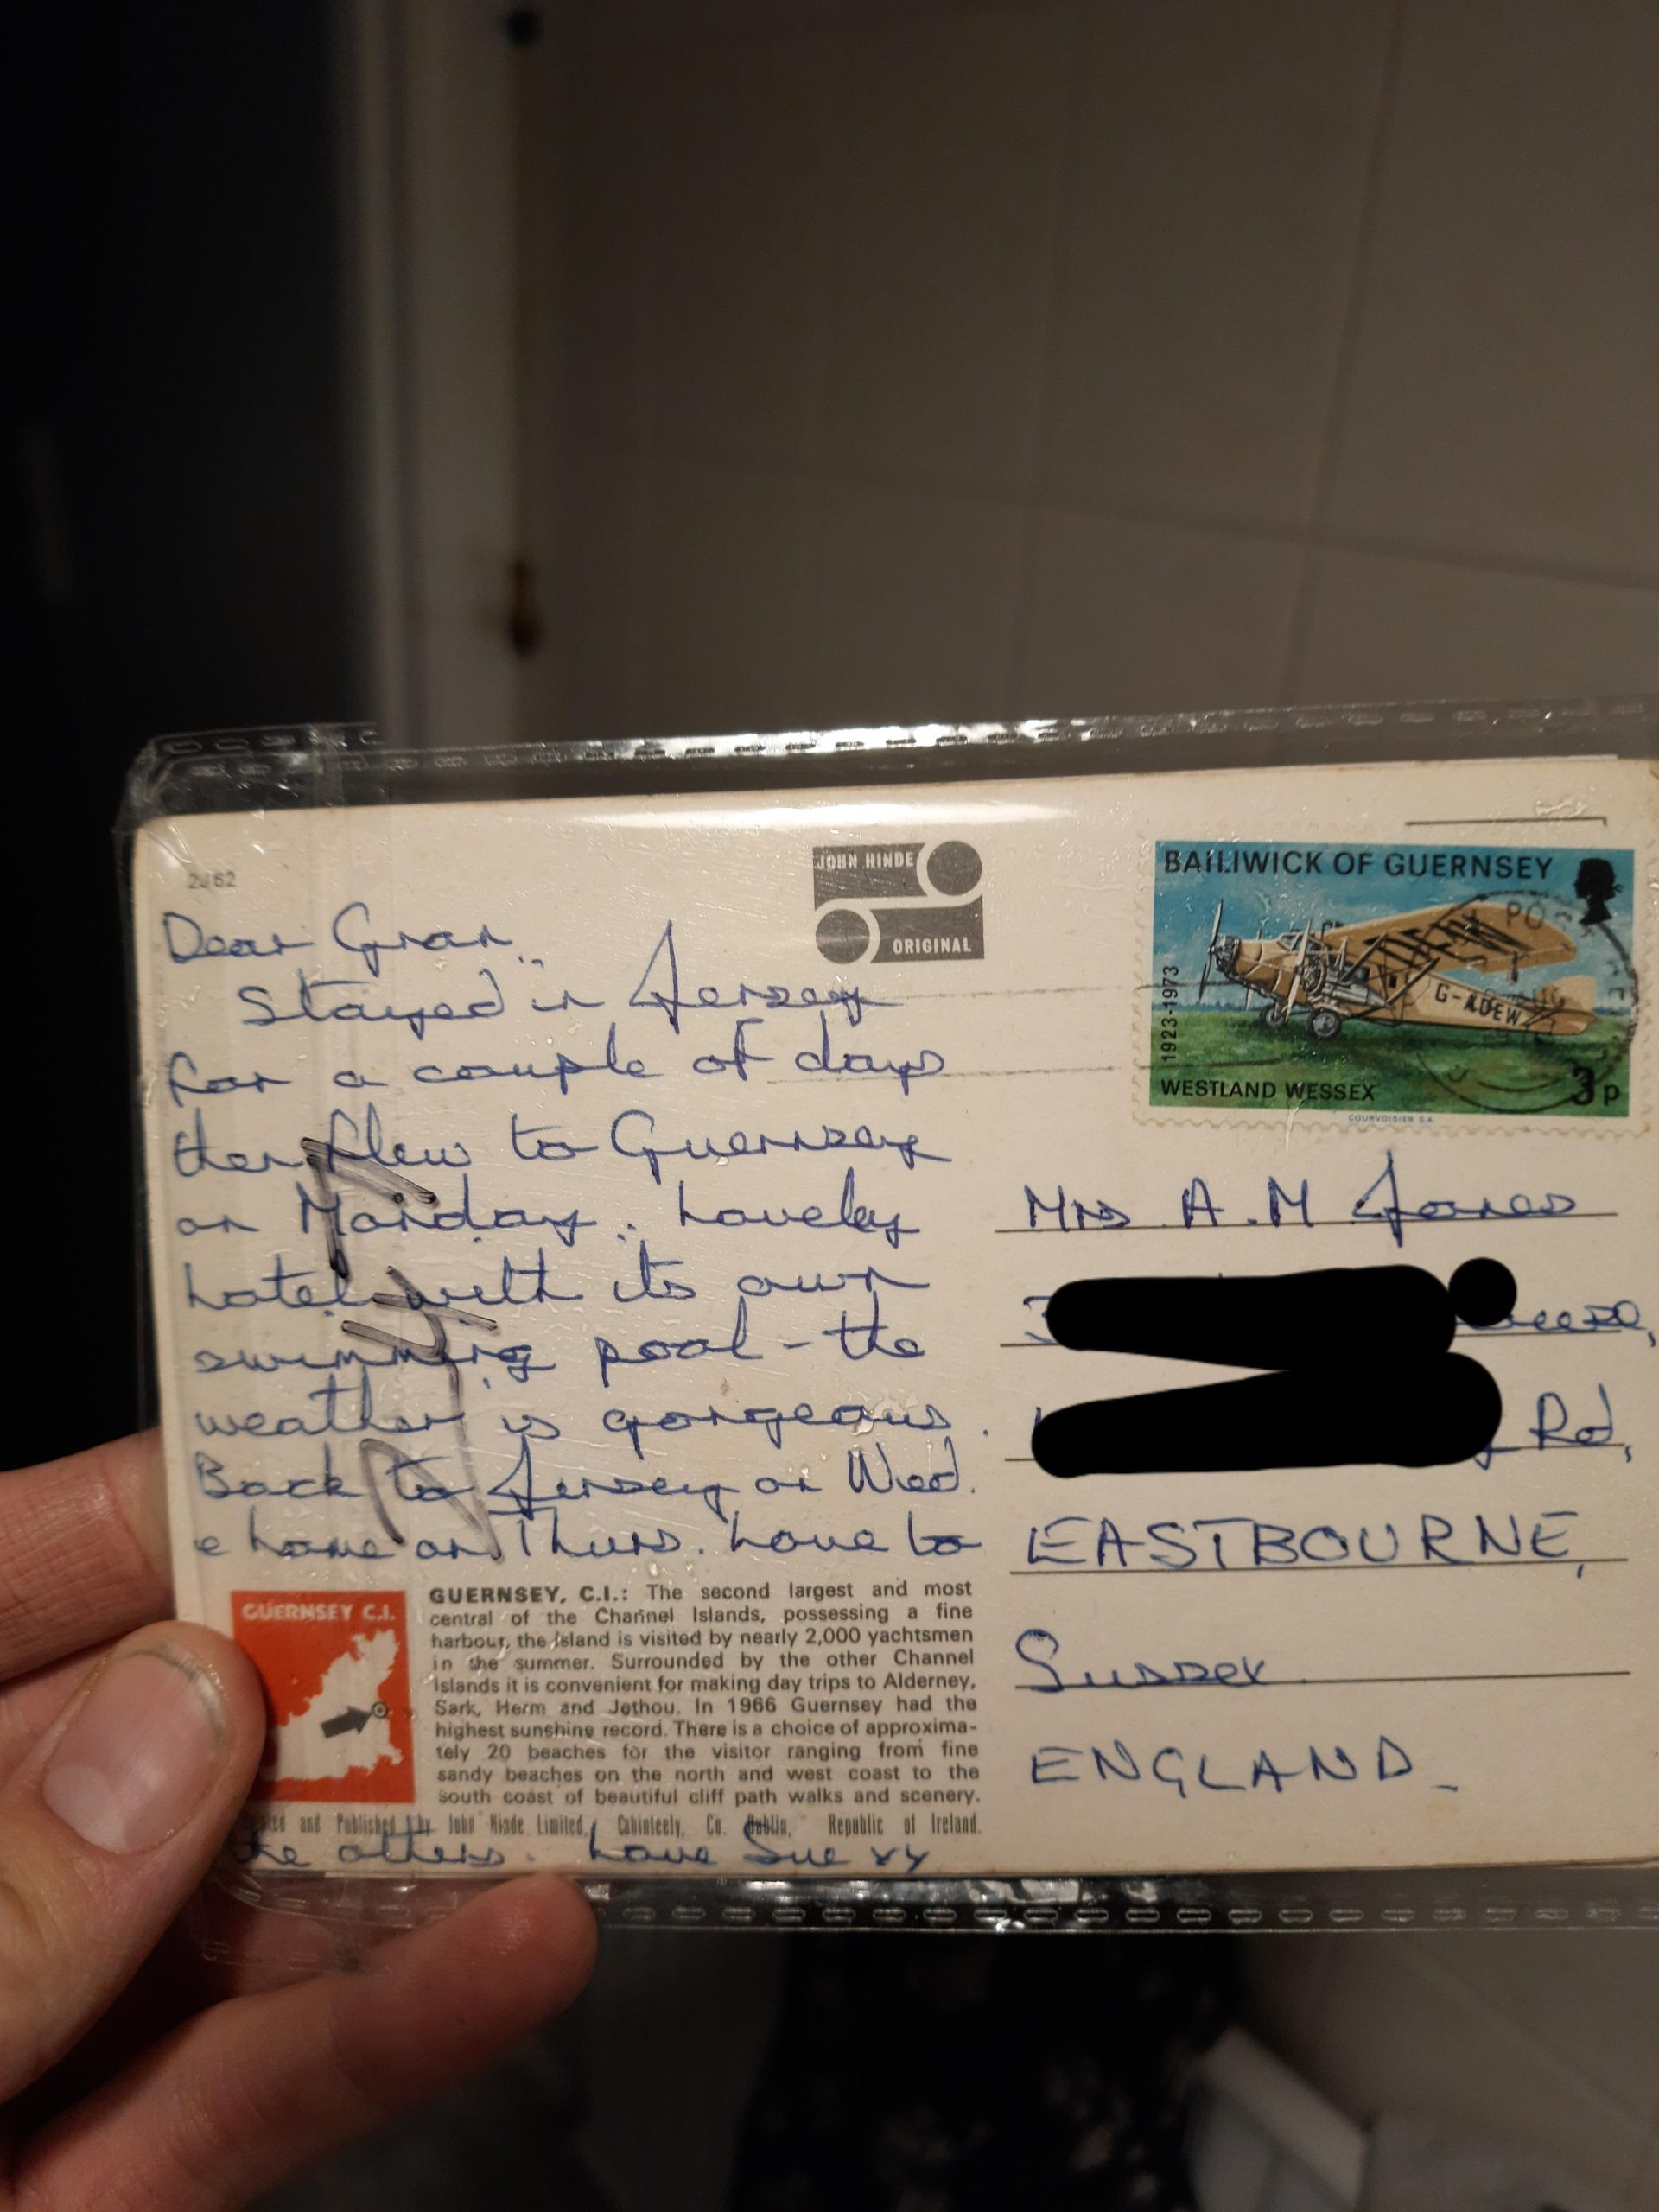 2J62
JOHN HINDE
ORIGINAL
Dear Gran,
Stayed in Jersey
for a couple of days
then flew to Guernsey
on Monday. Lovely
hotel with its own
swimming pool - the
weather is gorgeous.
Back to Jersey on Wed.
& home on Thurs. Love to
the others. Love Sue xx
GUERNSEY C.I.
GUERNSEY, C.I.: The second largest and most
central of the Channel Islands, possessing a fine
harbour, the island is visited by nearly 2,000 yachtsmen
in the summer. Surrounded by the other Channel
Islands it is convenient for making day trips to Alderney,
Sark, Herm and Jethou. In 1966 Guernsey had the
highest sunshine record. There is a choice of approxima-
tely 20 beaches for the visitor ranging from fine
sandy beaches on the north and west coast to the
south coast of beautiful cliff path walks and scenery.
and Published by John Hinde Limited, Cabinteely, Co. Dublin, Republic of Ireland.
BAILIWICK OF GUERNSEY
1923-1973
G-ADEW
WESTLAND WESSEX
3p
COURVOISIER S.A.
Mrs A.M Jones
Rd,
EASTBOURNE,
Sussex
ENGLAND.